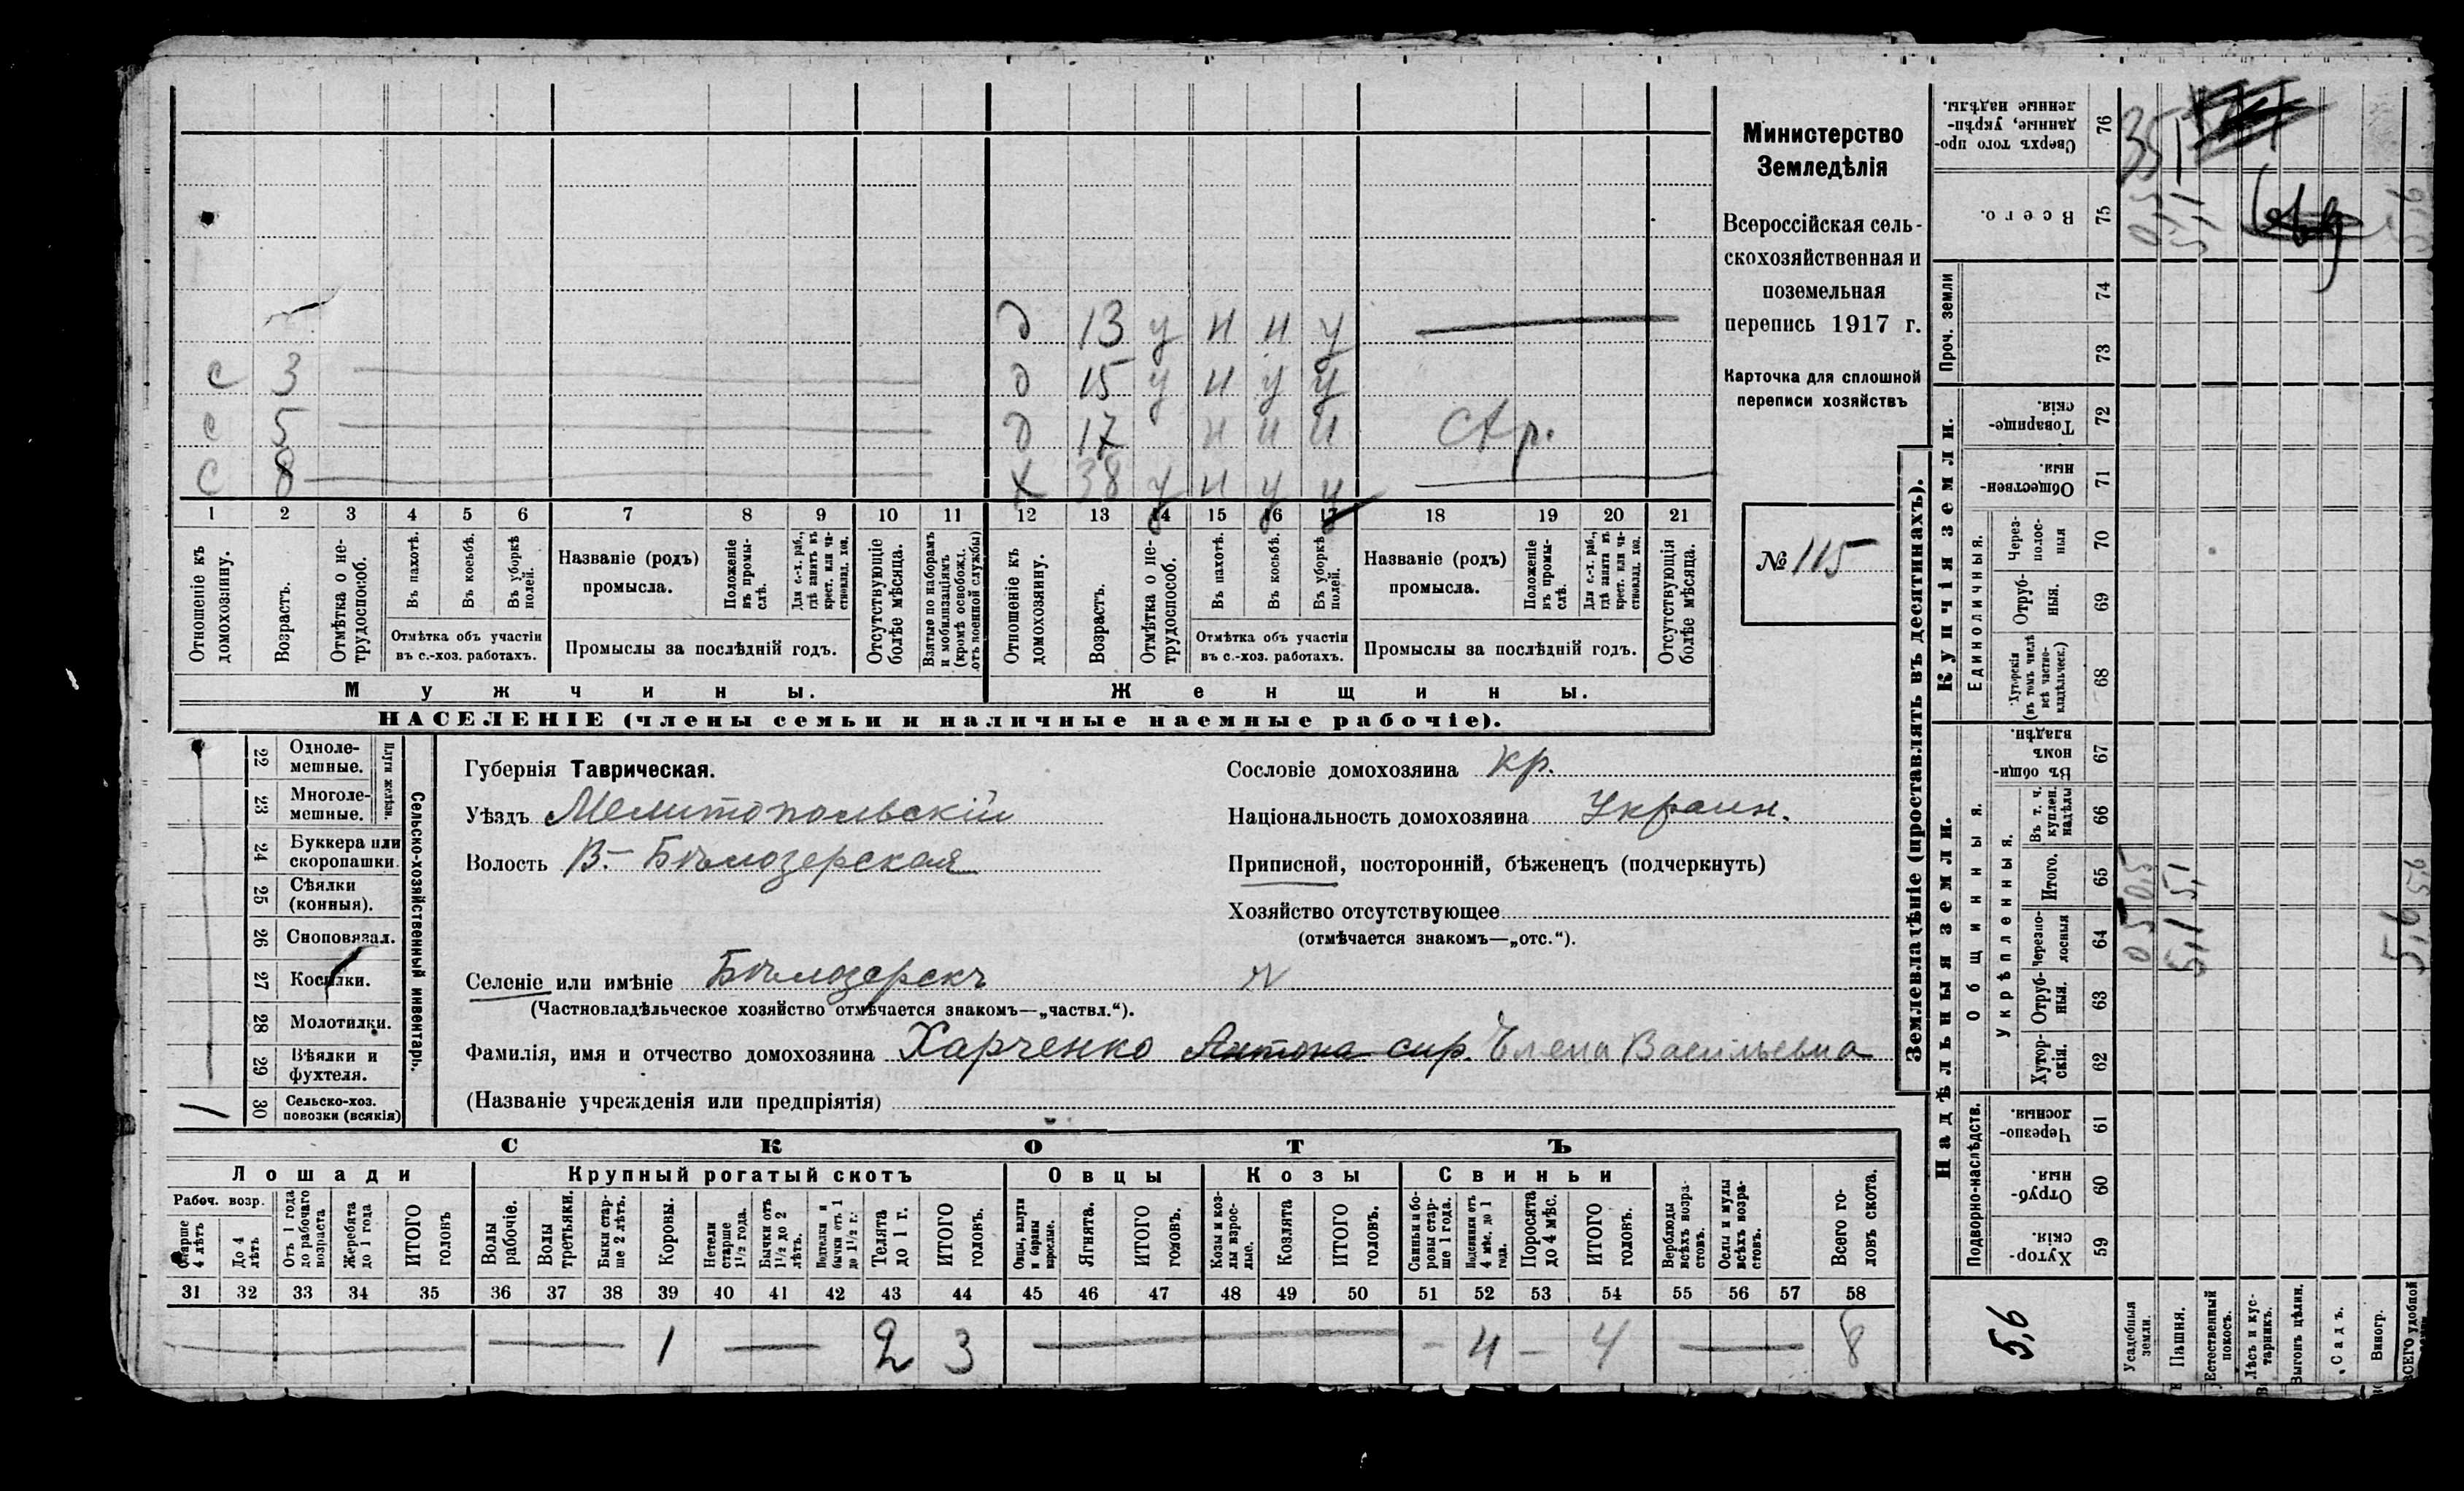 Министерство
Земледѣлія
Всероссійская сель-
скохозяйственная и
поземельная
перепись 1917 г.
Карточка для сплошной
переписи хозяйствъ
№ 115
д 13 у н н у
с 3 д 15 у н у у
с 5 д 17 н н н
с 8 х 38 у н у у
1 2 3 4 5 6 7 8 9 10 11 12 13 14 15 16 17 18 19 20 21
Отношеніе къ домохозяину.
Возрастъ.
Отмѣтка о не-трудоспособ.
Въ пахотѣ.
Въ косьбѣ.
Въ уборкѣ полей.
Отмѣтка объ участіи
въ с.-хоз. работахъ.
Названіе (родъ)
промысла.
Положеніе въ промы-слѣ.
Для с.-х. раб., гдѣ занятъ въ крест. или ча-стновлад. хоз.
Промыслы за послѣдній годъ.
Отсутствующіе болѣе мѣсяца.
Взятые по наборамъ и мобилизаціямъ (кромѣ освобожд. отъ военной службы)
Отношеніе къ домохозяину.
Возрастъ.
Отмѣтка о не-трудоспособ.
Въ пахотѣ.
Въ косьбѣ.
Въ уборкѣ полей.
Отмѣтка объ участіи
въ с.-хоз. работахъ.
Названіе (родъ)
промысла.
Положеніе въ промы-слѣ.
Для с.-х. раб., гдѣ занята въ крест. или ча-стновлад. хоз.
Промыслы за послѣдній годъ.
Отсутствующія болѣе мѣсяца.
Мужчины. Женщины.
НАСЕЛЕНІЕ (члены семьи и наличные наемные рабочіе).
Сельско-хозяйственный инвентарь.
Плуги желѣзн.
22 Одноле-мешные.
23 Многоле-мешные.
24 Буккера или скоропашки.
25 Сѣялки (конныя).
26 Сноповязал.
27 Косилки.
28 Молотилки.
29 Вѣялки и фухтеля.
1 30 Сельско-хоз. повозки (всякія)
Губернія Таврическая.
Уѣздъ Мелитопольскій
Волость В.- Бѣлозерская
Селеніе или имѣніе Бѣлозерскъ
(Частновладѣльческое хозяйство отмѣчается знакомъ—„частвл.“).
Фамилія, имя и отчество домохозяина Харченко Антона сир. Елена Васильевна
(Названіе учрежденія или предпріятія)
Сословіе домохозяина кр.
Національность домохозяина Украин.
Приписной, посторонній, бѣженецъ (подчеркнуть)
Хозяйство отсутствующее
(отмѣчается знакомъ—„отс.“).
СКОТЪ
Лошади Крупный рогатый скотъ Овцы Козы Свиньи
Рабоч. возр.
Старше 4 лѣтъ
До 4 лѣтъ
Отъ 1 года до рабочаго возраста
Жеребята до 1 года
ИТОГО головъ
Волы рабочіе.
Волы третьяки.
Быки стар-ше 2 лѣтъ.
Коровы.
Нетели старше 1½ года.
Бычки отъ 1½ до 2 лѣтъ.
Подтелки и бычки отъ 1 до 1½ г.
Телята до 1 г.
ИТОГО головъ.
Овцы, валухи и бараны взрослые.
Ягнята.
ИТОГО головъ.
Козы и коз-лы взрос-лые.
Козлята
ИТОГО головъ.
Свиньи и бо-ровы стар-ше 1 года.
Подсвинки отъ 4 мѣс. до 1 года.
Поросята до 4 мѣс.
ИТОГО головъ.
Верблюды всѣхъ возра-стовъ.
Ослы и мулы всѣхъ возра-стовъ.
Всего го-ловъ скота.
31 32 33 34 35 36 37 38 39 40 41 42 43 44 45 46 47 48 49 50 51 52 53 54 55 56 57 58
1 2 3 4 4 8
Землевладѣніе (проставлять въ десятинахъ).
Купчія земли.
Надѣльныя земли.
Сверхъ того про-данные, укрѣп-ленные надѣлы. 76
Всего. 75 0,5 5,1 5,6
Проч. земли
74
73
Товарище-скія. 72
Обществен-ныя. 71
Единоличныя.
Через-полос-ныя 70
Отруб-ныя. 69
Хуторскія (въ томъ числѣ всѣ частно-владѣльческ.) 68
Общинныя.
Въ общи-номъ владѣн. 67
Укрѣпленныя.
Въ т. ч. куплен. надѣлы 66
Итого. 65 0,5 5,1 5,6
Черезпо-лосныя 64 0,5 5,1 5,6
Отруб-ныя. 63
Хутор-скія. 62
Подворно-наслѣдств.
Черезпо-лосныя. 61
Отруб-ныя. 60
Хутор-скія. 59
5,6
Усадебныя земли.
Пашня.
Естественный покосъ.
Лѣсъ и кус-тарникъ.
Выгонъ цѣлин.
Садъ.
Виногр.
ВСЕГО удобной